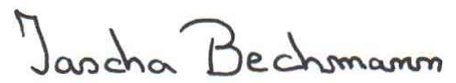 Jascha Bechmann